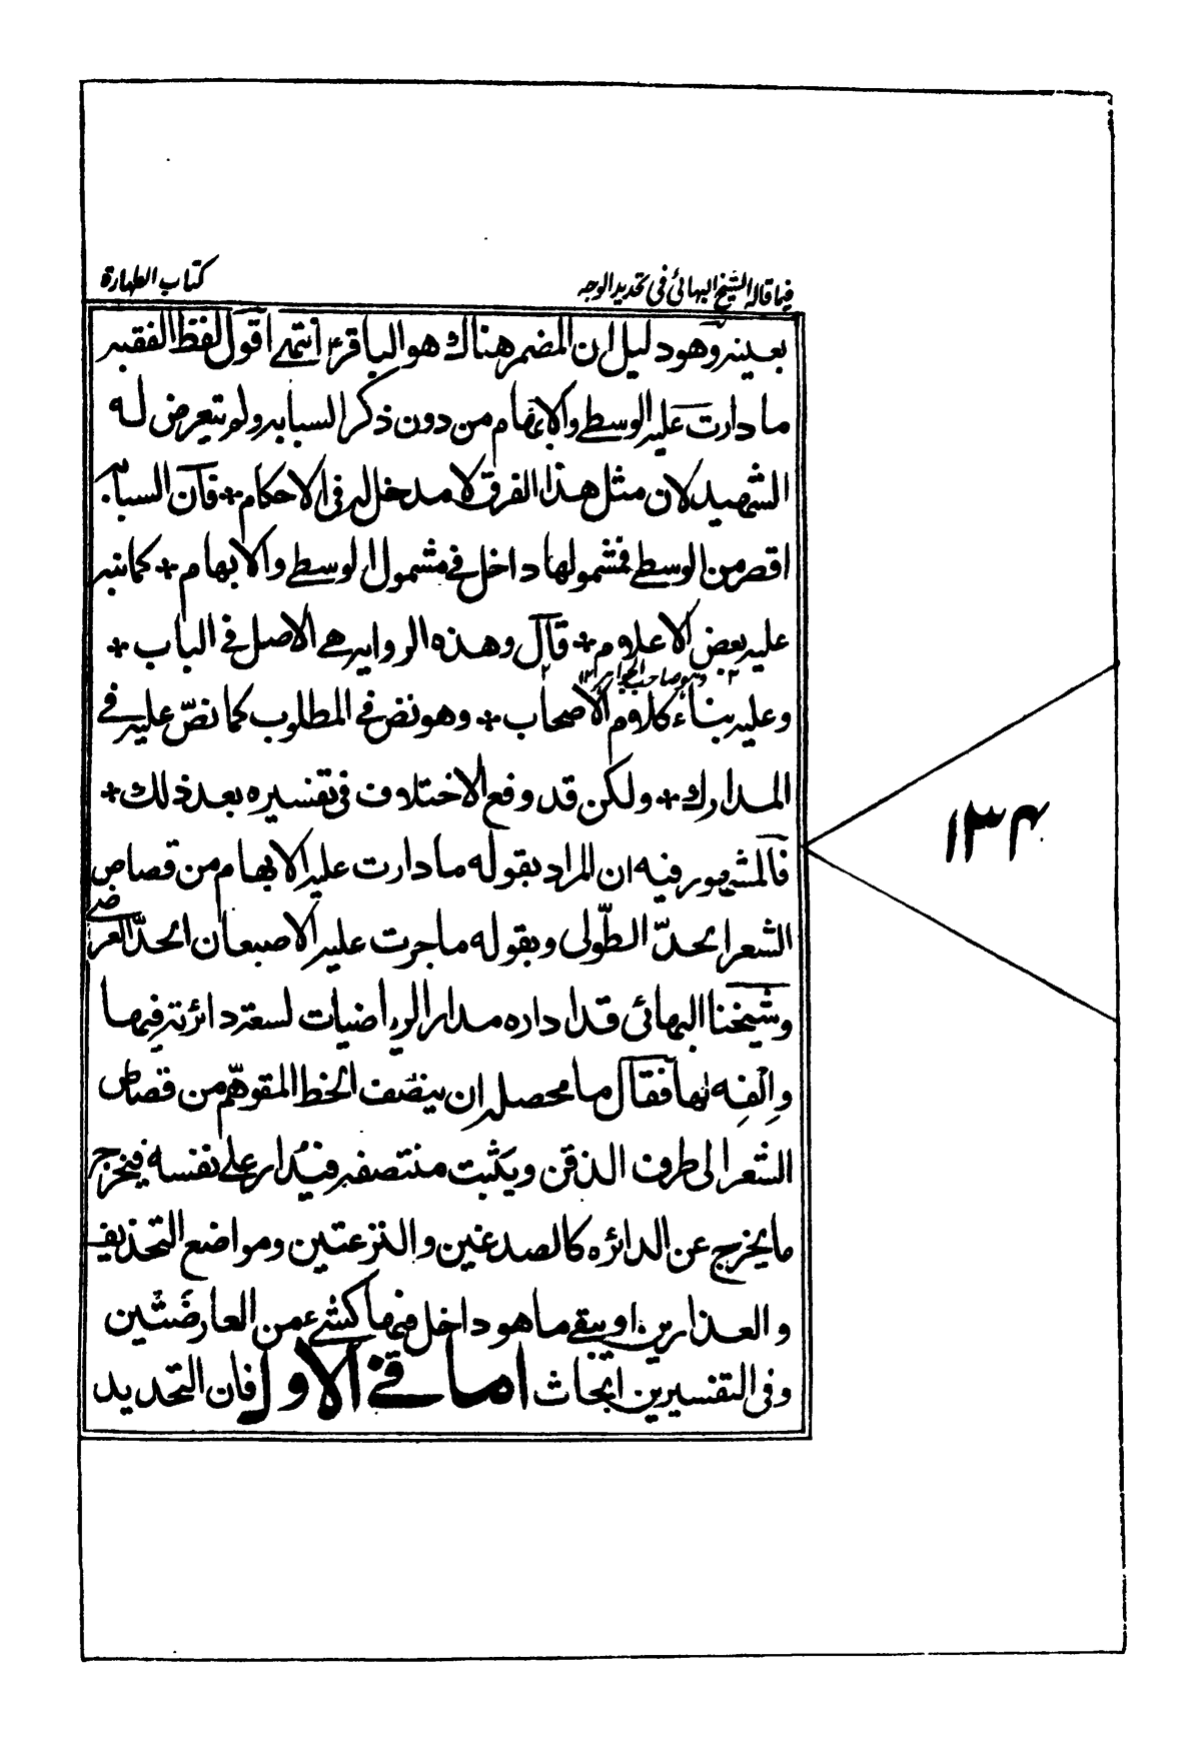 فيما قاله الشيخ البهائي في تحديد الوجه
كتاب الطهارة
بعينه وهو دليل ان المضمر هناك هو الباقرع انتهى اقول لفظ الفقيه
ما دارت عليه الوسطى والابهام من دون ذكر السبابه ولم يتعرض له
الشهيد لان مثل هذا الفرق لا مدخل له في الاحكام + فان السبابه
اقصر من الوسطى فمشمولها داخل في مشمول الوسطى والابهام + كما نبه
عليه بعض الاعلام + قال وهذه الروايه هي الاصل في الباب +
۲ وهو صاحب الجواهر ۱۲
وعليه بناء كلام الاصحاب + وهو نص في المطلوب كما نصّ عليه في
المدارك + ولكن قد وقع الاختلاف في تفسيره بعد ذلك +
فالمشهور فيه ان المراد بقوله ما دارت عليه الابهام من قصاص
الشعر الحدّ الطّولى وبقوله ما جرت عليه الاصبعان الحدّ العرضى
وشيخنا البهائى قد اداره مدار الرياضيات لسعة دائرته فيها
والفه بها فقال ما محصله ان ينصّف الخط المتوهّم من قصاص
الشعر الى طرف الذقن ويثبت منتصفه فيُدار على نفسه فيخرج
ما يخرج عن الدائره كالصدغين والنزعتين ومواضع التحذيف
والعذارين او يبقى ما هو داخل فيها كشىء من العارضَين
وفى التفسيرين ابحاث اما فى الاول فان التحديد
۱۳۴